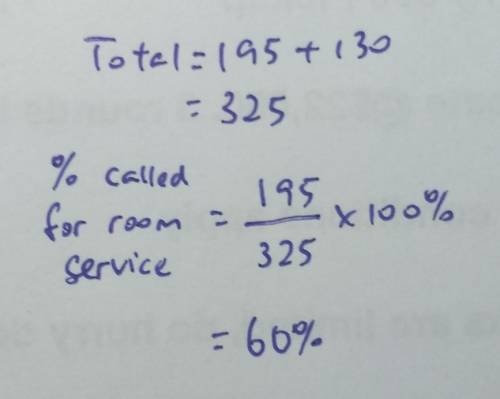 Total = 195 + 130
= 325
% called
for room
service
= 195/325 × 100%
= 60%